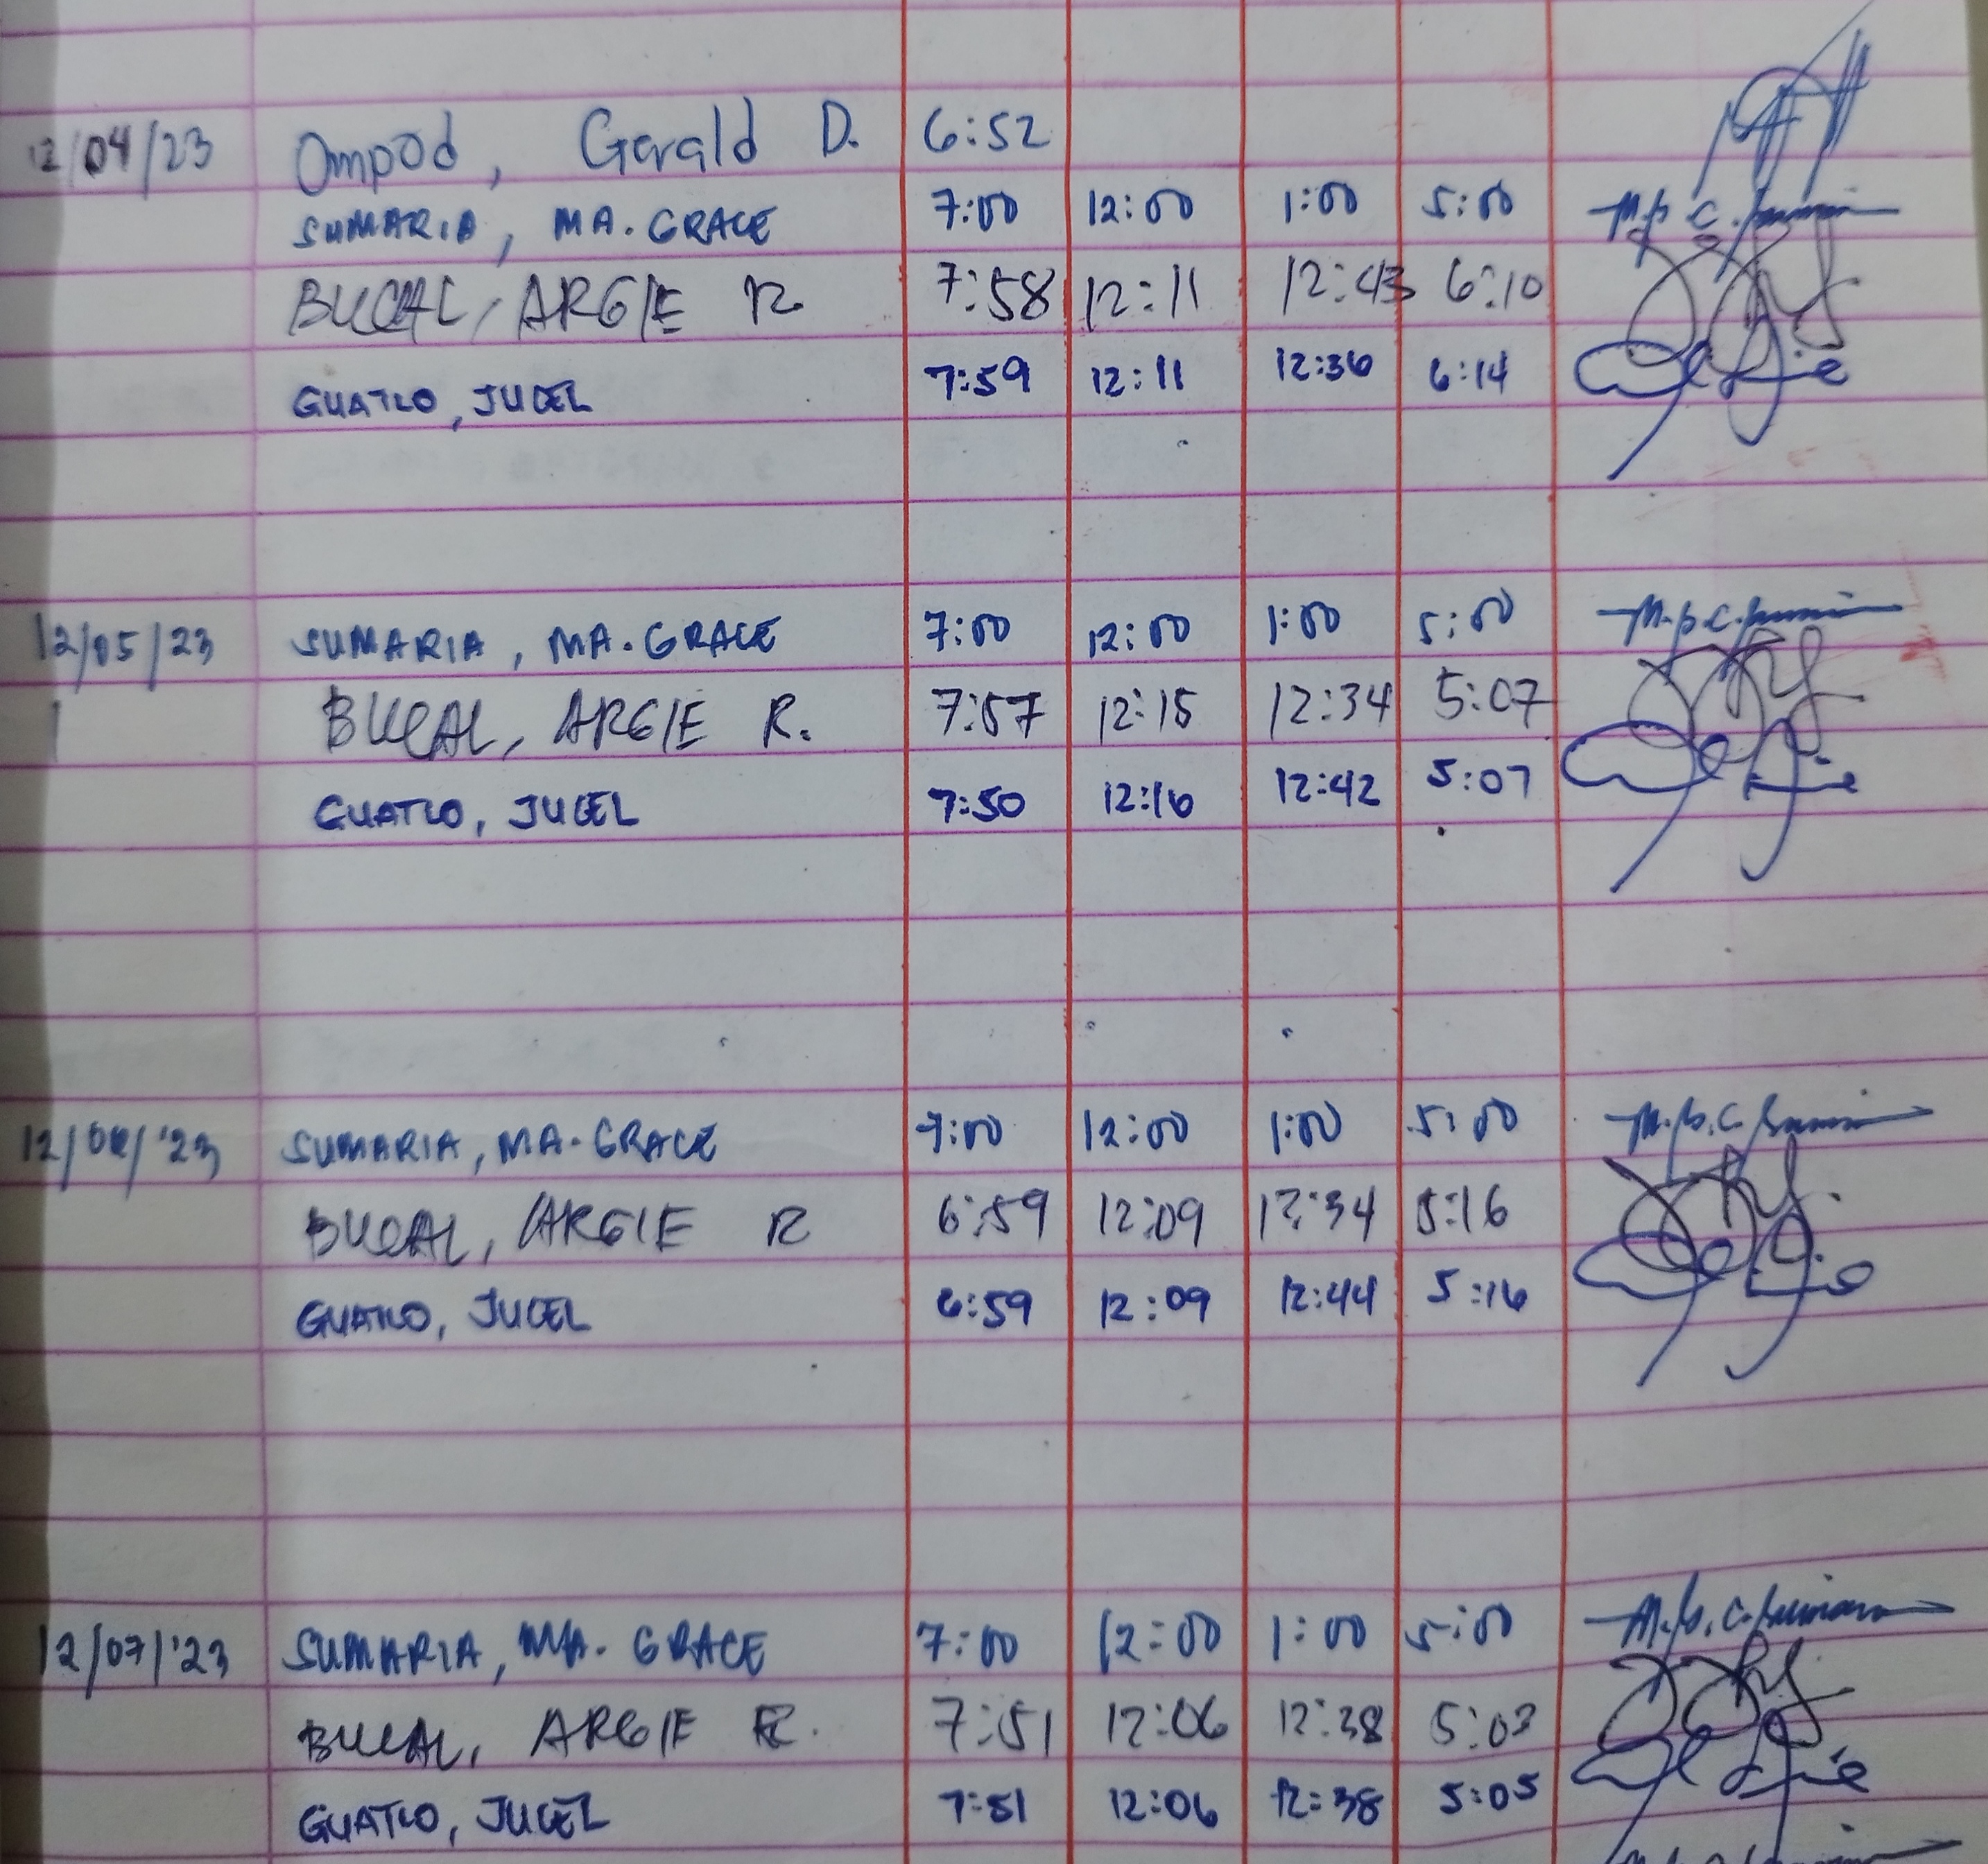 12/04/23 Ompod, Gerald D. 6:52
SUMARIA, MA. GRACE 7:00 12:00 1:00 5:00
BUCAL, ARGIE R 7:58 12:11 12:43 6:10
GUATLO, JUCEL 7:59 12:11 12:36 6:14
12/05/23 SUMARIA, MA. GRACE 7:00 12:00 1:00 5:00
BUCAL, ARGIE R. 7:57 12:15 12:34 5:07
GUATLO, JUCEL 7:50 12:16 12:42 5:07
12/06/'23 SUMARIA, MA. GRACE 7:00 12:00 1:00 5:00
BUCAL, ARGIE R 6:59 12:09 12:34 5:16
GUATLO, JUCEL 6:59 12:09 12:44 5:16
12/07/'23 SUMARIA, MA. GRACE 7:00 12:00 1:00 5:00
BUCAL, ARGIE R. 7:51 12:06 12:38 5:03
GUATLO, JUCEL 7:51 12:06 12:38 5:05